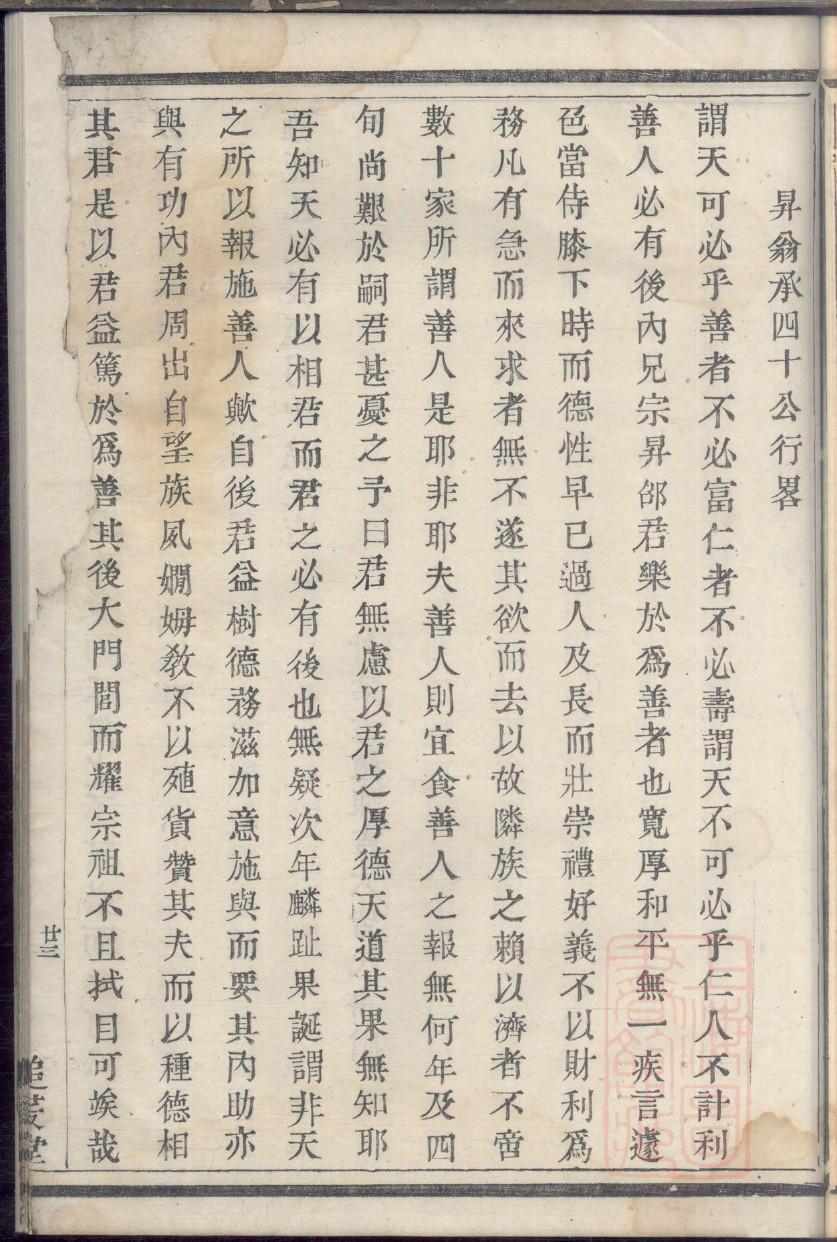 昇翁承四十公行畧
謂天可必乎善者不必富仁者不必壽謂天不可必乎仁人不計利
善人必有後內兄宗昇邵君樂於爲善者也寬厚和平無一疾言遽
色當侍膝下時而德性早已過人及長而壯崇禮好義不以財利爲
務凡有急而來求者無不遂其欲而去以故隣族之賴以濟者不啻
數十家所謂善人是耶非耶夫善人則宜食善人之報無何年及四
旬尚艱於嗣君甚憂之予曰君無慮以君之厚德天道其果無知耶
吾知天必有以相君而君之必有後也無疑次年麟趾果誕謂非天
之所以報施善人歟自後君益樹德務滋加意施與而要其內助亦
與有功內君周出自望族夙嫺姆教不以殖貨贊其夫而以種德相
其君是以君益篤於爲善其後大門閭而耀宗祖不且拭目可竢哉
廿三